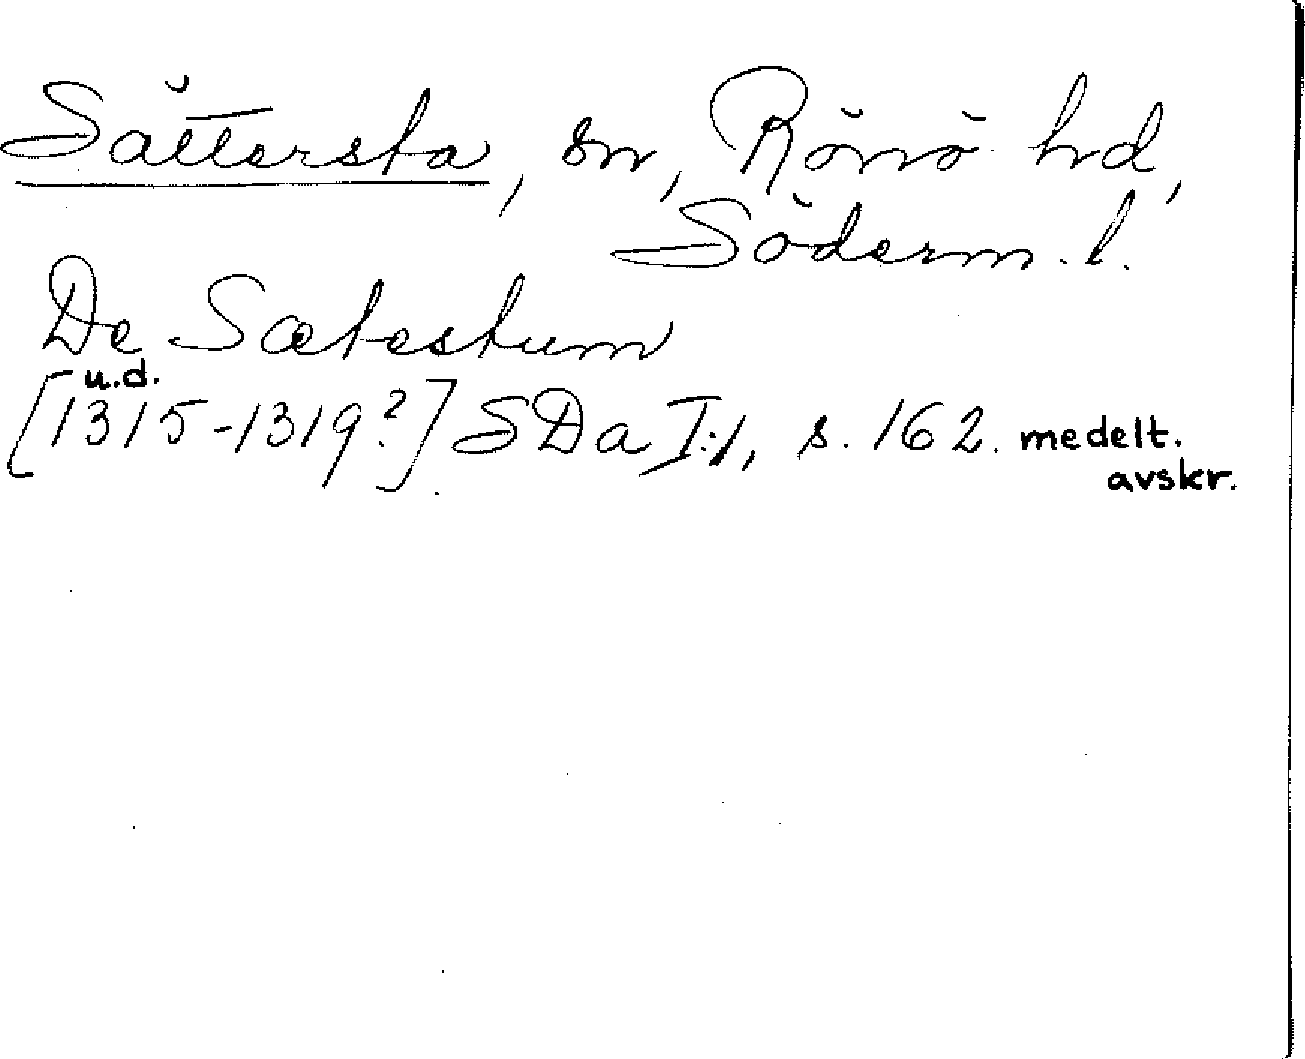 Sättersta, sn, Rönö hd,
Söderm. l.
De Sætestum
u.d.
[1315-1319?] SDa I:1, s. 162. medelt.
avskr.